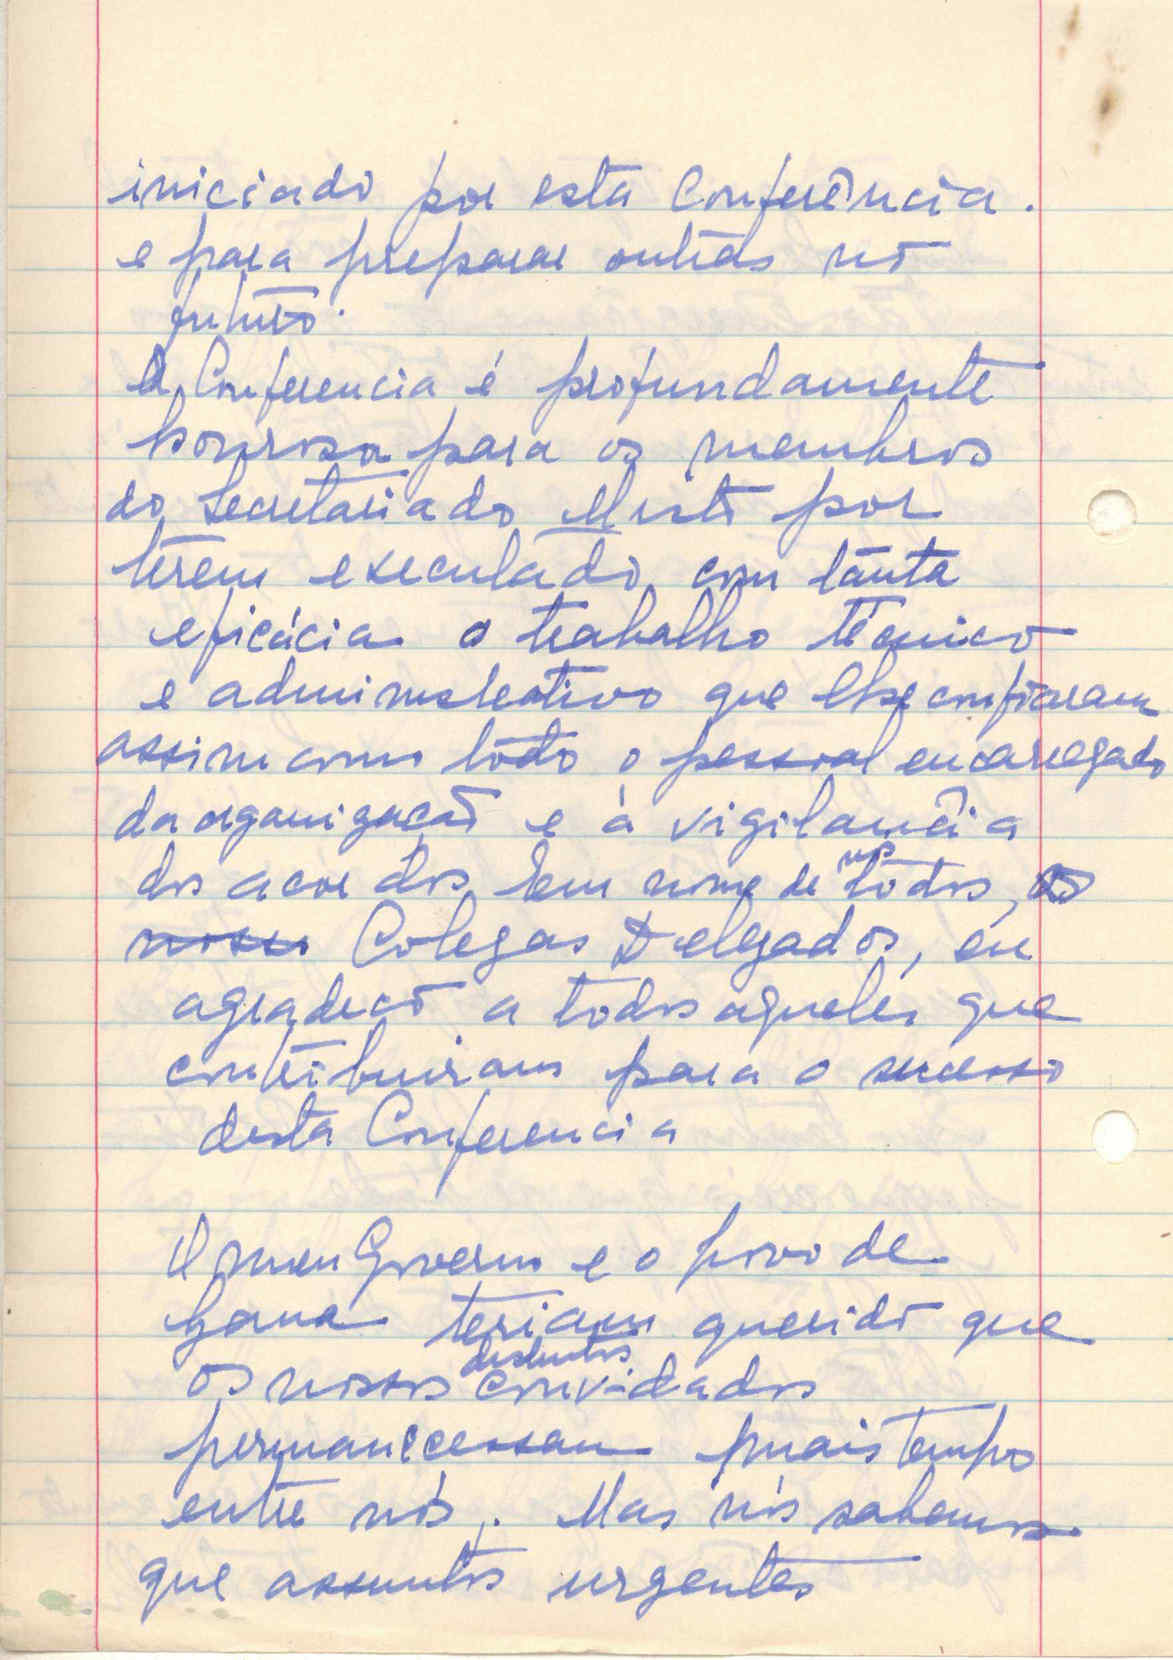 iniciado por esta Conferência.
e para preparar outras no
futuro.
A Conferencia é profundamente
honrosa para os membros
do Secretariado Misto por
terem executado com tanta
eficácia o trabalho técnico
e administrativo que lhe confiaram
assim como todo o pessoal encarregado
da organização e à vigilância
dos acordos. Em nome de nós todos, os
Colegas Delegados, eu
agradeço a todos aqueles que
contribuiram para o sucesso
desta Conferencia
O meu Governo e o povo de
Gana teriam querido que
os nossos distintos convidados
permanecessam mais tempo
entre nós. Mas nós sabemos
que assuntos urgentes